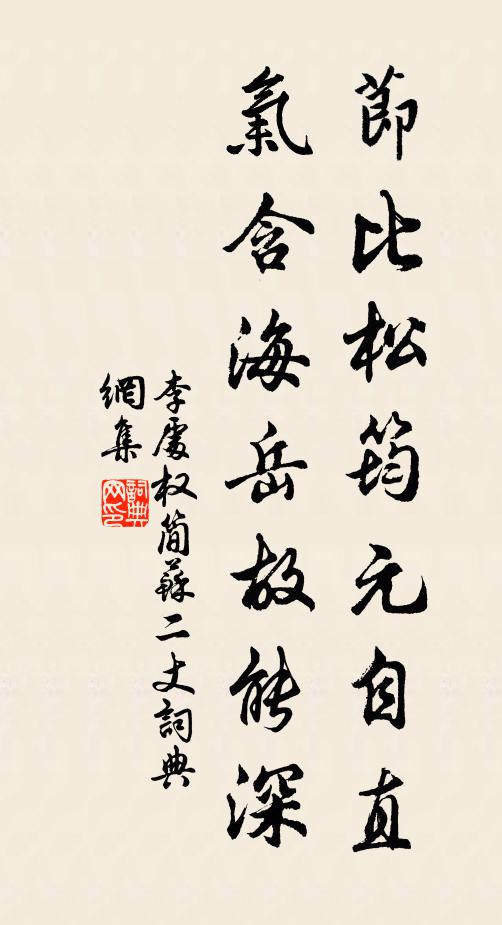 節比松筠元自直
氣含海岳故能深
李處权简蘇二丈詞典
網集
詞典網印